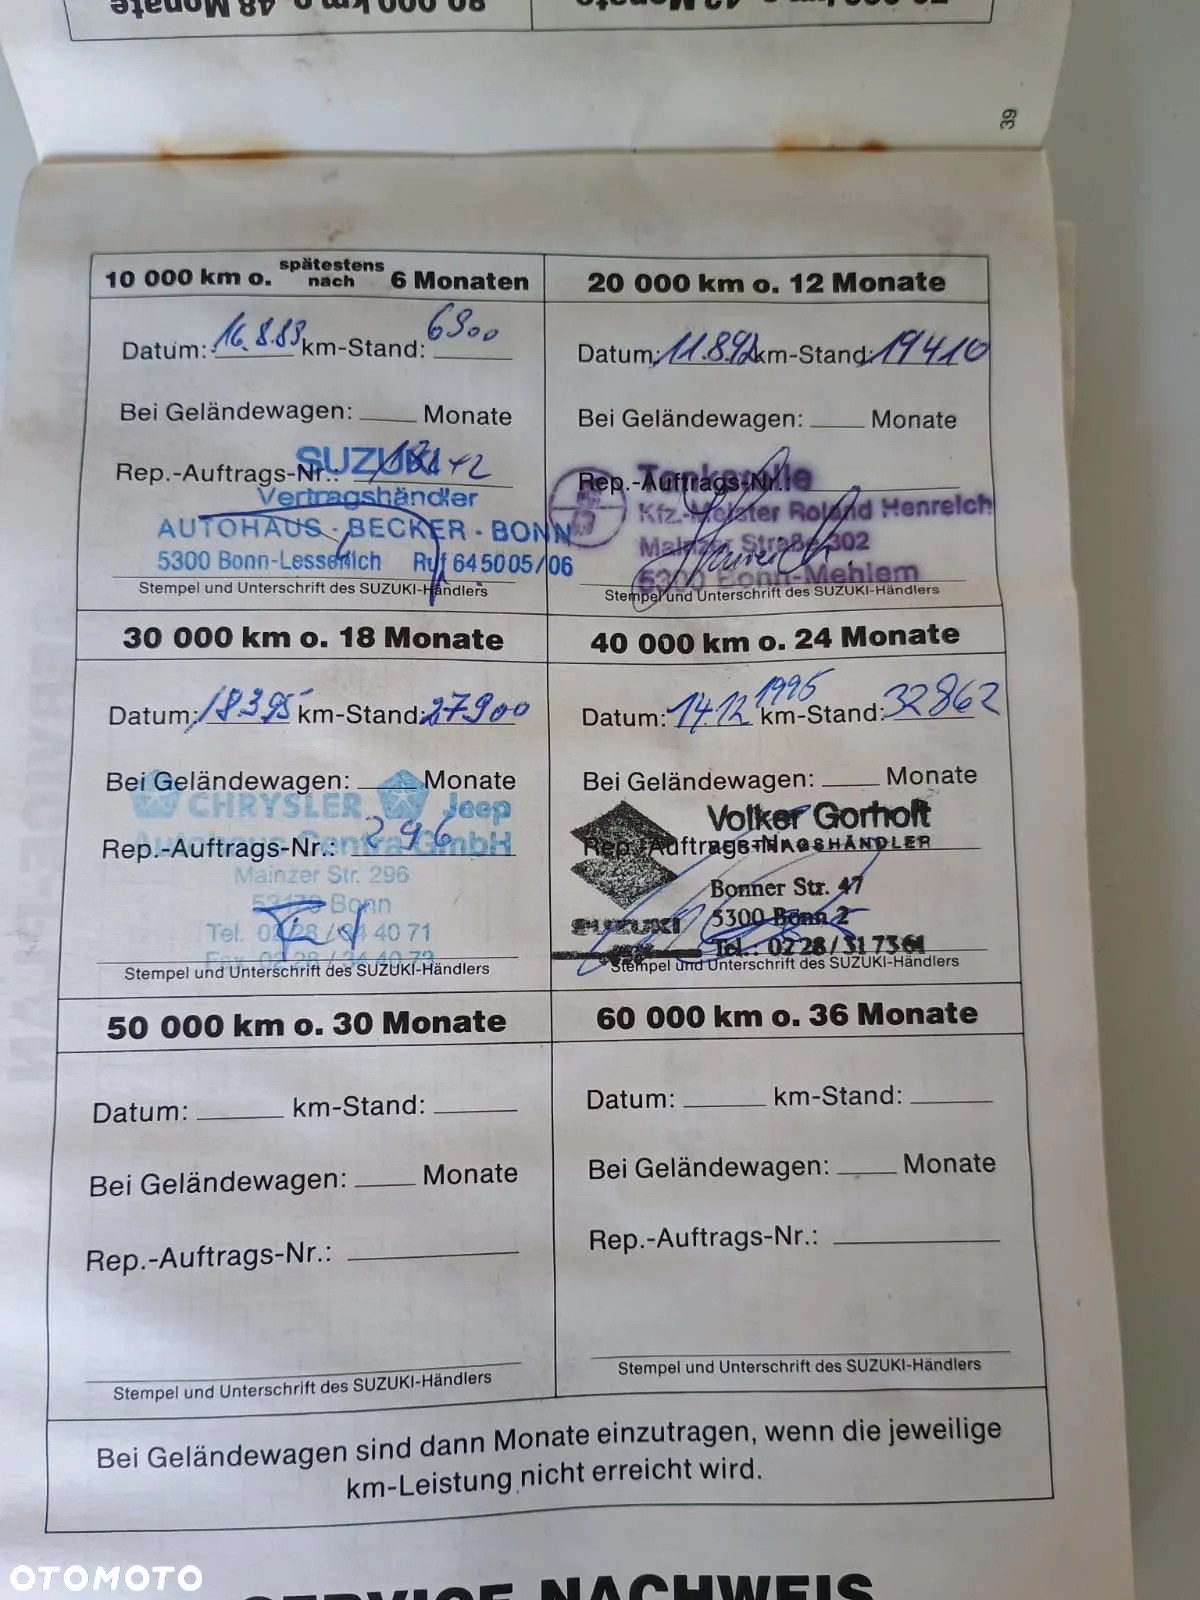 80 000 km o. 48 Monate
70 000 km o. 42 Monate
39
10 000 km o. spätestens nach 6 Monaten
Datum: 16.8.89 km-Stand: 6900
Bei Geländewagen: Monate
Rep.-Auftrags-Nr.:
SUZUKI
Vertragshändler
AUTOHAUS - BECKER - BONN
5300 Bonn-Lessenich Ruf 645005/06
Stempel und Unterschrift des SUZUKI-Händlers
20 000 km o. 12 Monate
Datum: 11.8.92 km-Stand: 19410
Bei Geländewagen: Monate
Rep.-Auftrags-Nr.:
Kfz.-Meister Roland Henreich
Mainzer Straße 302
5300 Bonn-Mehlem
Stempel und Unterschrift des SUZUKI-Händlers
30 000 km o. 18 Monate
Datum: 18395 km-Stand: 27900
Bei Geländewagen: Monate
CHRYSLER Jeep
Rep.-Auftrags-Nr.: 296
Autohaus Centra GmbH
Mainzer Str. 296
53179 Bonn
Tel. 02 28 / 34 40 71
Fax 02 28 / 34 40 73
Stempel und Unterschrift des SUZUKI-Händlers
40 000 km o. 24 Monate
Datum: 14.12 1995 km-Stand: 32862
Bei Geländewagen: Monate
Volker Gorholt
Rep.-Auftrags-Nr.:
VERTRAGSHÄNDLER
Bonner Str. 47
5300 Bonn 2
SUZUKI
Tel.: 02 28 / 31 73 61
Stempel und Unterschrift des SUZUKI-Händlers
50 000 km o. 30 Monate
Datum: km-Stand:
Bei Geländewagen: Monate
Rep.-Auftrags-Nr.:
Stempel und Unterschrift des SUZUKI-Händlers
60 000 km o. 36 Monate
Datum: km-Stand:
Bei Geländewagen: Monate
Rep.-Auftrags-Nr.:
Stempel und Unterschrift des SUZUKI-Händlers
Bei Geländewagen sind dann Monate einzutragen, wenn die jeweilige
km-Leistung nicht erreicht wird.
SERVICE NACHWEIS
OTOMOTO